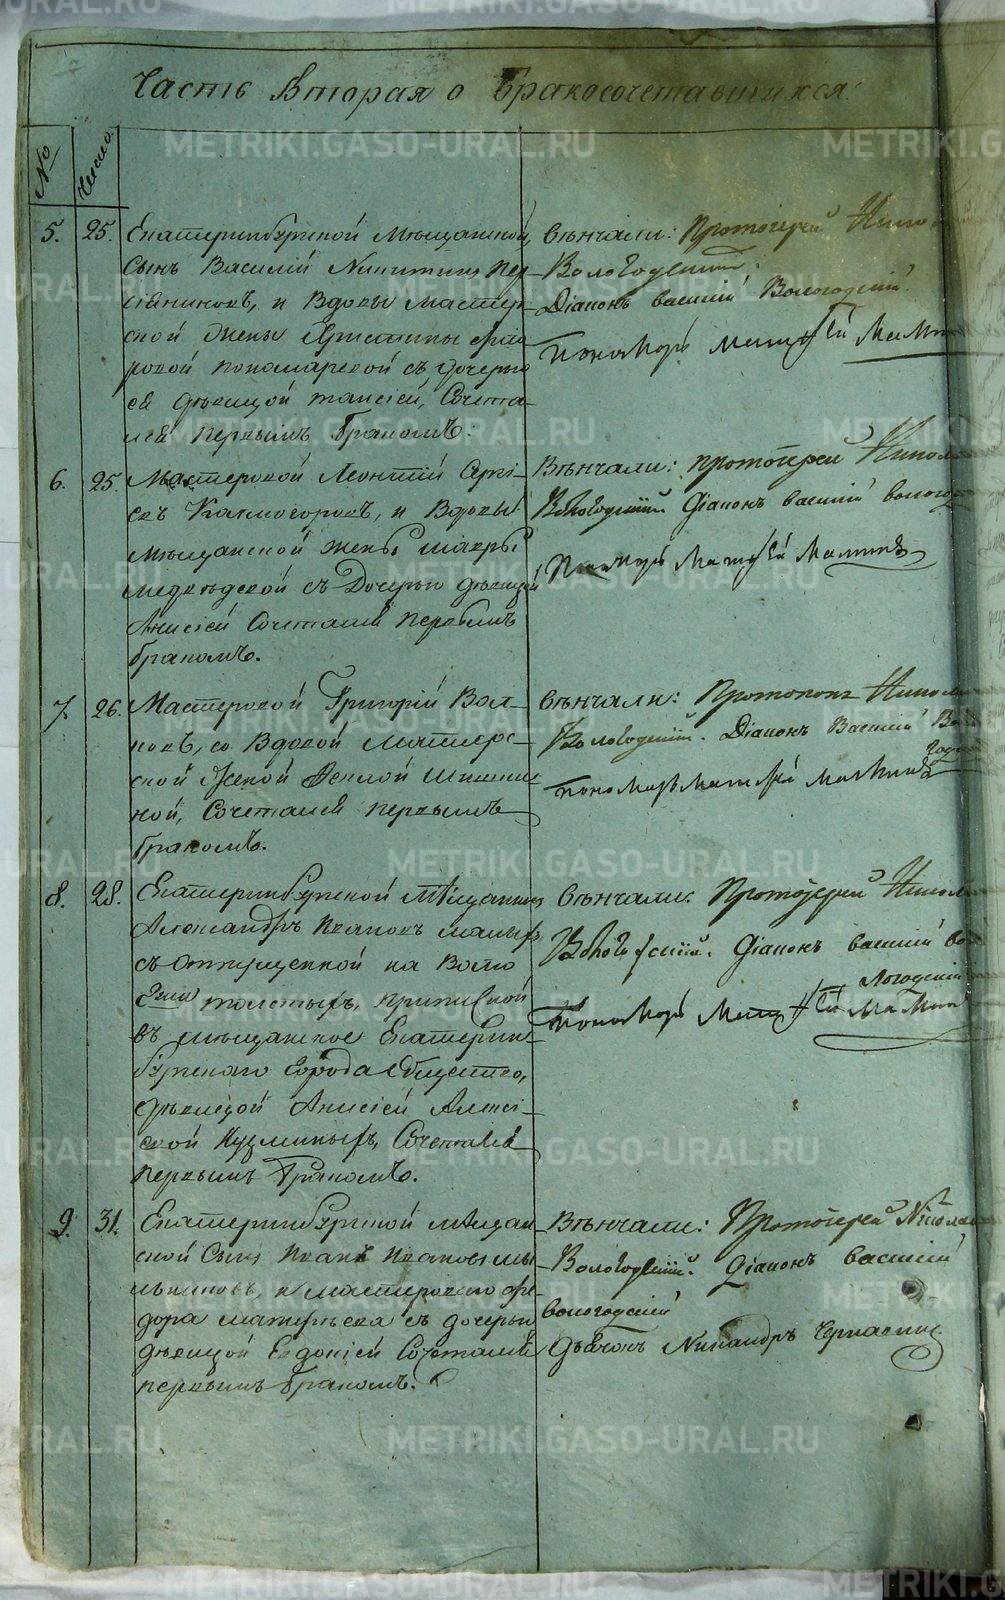 Часть Вторая о бракосочетавшихся.
№
Число.
5. 25. Екатеринбургской Мещанской
Сынъ Василій Никитинъ Пер-
, и Вдовы мастер-
ской Жены Христины
ровой Пономаревой съ дочерью
ея девицой Таисіей, Сочета-
лся первымъ бракомъ.
Венчали: Протоіерей Никола
Вологодский.
Діаконъ Василий Вологодский.
Пономарь Матфей Мамин
6. 25. Мастеровой Леонтий Сергі-
евъ Казмогоровъ, и Вдовы
Мещанской Жены Мавры
Медведевой съ Дочерью девицой
Анисіей Сочетался первымъ
бракомъ.
Венчали: протоіерей Никола
Вологодский Діаконъ Василий Волого
Пономарь Матфей Маминъ
7. 26. Мастеровой Григорій Вол-
ковъ, со Вдовой Мастерс-
кой Женой Феклой Шишки-
ной, Сочетался первымъ
бракомъ.
Венчали: Протопопъ Никола
Вологодский. Діаконъ Василий Воло
годский
Пономарь Матфей Маминъ
8. 28. Екатеринбургской Мещанинъ
Александръ Ивановъ Малыхъ
съ Отпущенной на Волю
Толстыхъ, приписной
въ мещанское Екатерин-
бургскаго Города Общество,
девицой Анисіей Алексі-
евой Кузминыхъ, Сочетался
первымъ бракомъ.
Венчали. Протоіерей Никола
Вологодский. Діаконъ Василий Во
логодский
Пономарь Матфей Мамин
9. 31. Екатеринбургской мещан-
ской Сынъ Иванъ Ивановъ Мы-
льниковъ, и мастероваго Фе-
дора Матвеева съ дочерью
девицой Евдокіей Сочетался
первымъ бракомъ.
Венчали: Протоіерей Никола
Вологодский. Діаконъ Василий
Вологодский
Дьячокъ Никандръ Чернавинъ
METRIKI.GASO-URAL.RU